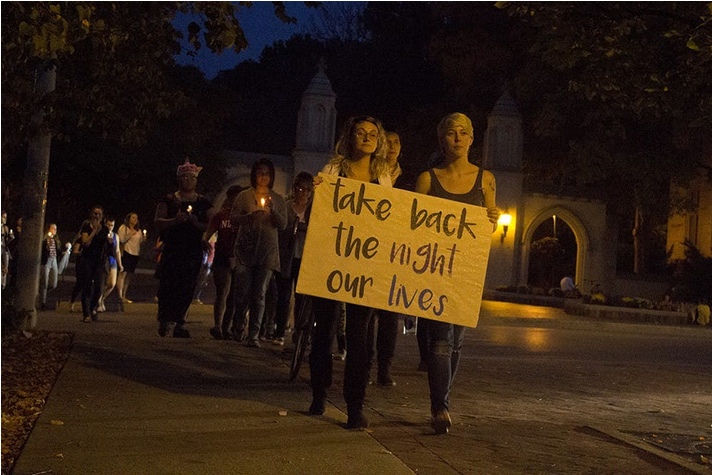 take back
the night
our lives